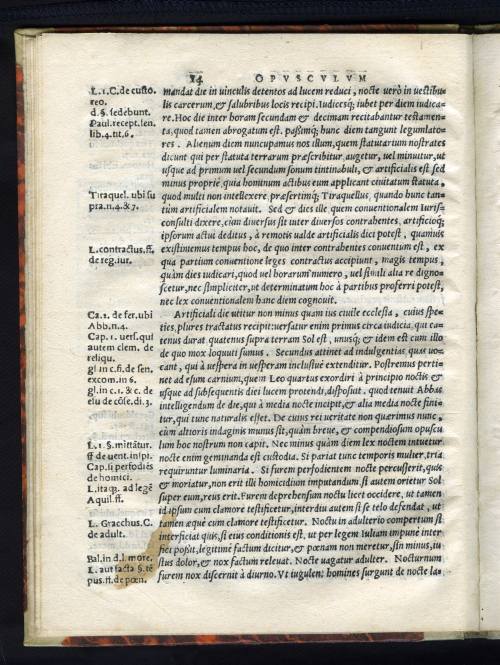 84 OPVSCVLVM
L. 1. C. de custo.
reo.
d. §. sedebunt.
Paul. recept. sen.
lib. 4. tit. 6.
Tiraquel. ubi su
pra. n. 4. & 7.
L. contractus. ff.
de reg. iur.
Ca. 1. de fer. ubi
Abb. n. 4.
Cap. 1. uers. qui
autem clem. de
reliqu.
gl in c. fi. de sen.
excom. in 6.
gl. in c. 1. & c. de
elu de cōse. di. 3.
L. 1. §. mittātur.
ff de uent. inspi.
Cap. si perfodiēs
de homici.
L. itaq;. ad legē
Aquil. ff.
L. Gracchus. C.
de adult.
Bal. in d. l. more.
L. aut facta §. tē
pus. ff. de pœn.
mandat die in uinculis detentos ad lucem reduci, nocte uerò in uestibu
lis carcerum, & salubribus locis recipi. Iudicesq; iubet per diem iudica=
re. Hoc die inter horam secundam & decimam recitabantur testamen=
ta, quod tamen abrogatum est. paßimq; hunc diem tangunt legumlato=
res. Alienum diem nuncupamus nos illum, quem statutarium nostrates
dicunt qui per statuta terrarum præscribitur, augetur, uel minuitur, ut
usque ad primum uel secundum sonum tintinabuli, & artificialis est sed
minus proprie, quia hominum actibus eum applicant ciuitatum statuta,
quod multi non intellexere, præsertimq; Tiraquellus, quando hunc tan=
tùm artificialem notauit. Sed & dies ille, quem conuentionalem Iuris=
consulti dixere, cùm diuersus sit inter diuersos contrahentes, artificioq;
ipsorum actui deditus, à remotis ualde artificialis dici potest, quamuis
existimemus tempus hoc, de quo inter contrahentes conuentum est, ex
qua partium conuentione leges contractus accipiunt, magis tempus,
quàm dies iudicari, quod uel horarum numero, uel simili alia re digno=
scetur, nec simpliciter, ut determinatum hoc à partibus proferri potest,
nec lex conuentionalem hunc diem cognouit.
Artificiali die utitur non minus quam ius ciuile ecclesia, cuius spe=
cies, plures tractatus recipit: uersatur enim primus circa iudicia, qui ca=
tenus durat quatenus supra terram Sol est, unusq; & idem est cum illo
de quo mox loquuti sumus. Secundus attinet ad indulgentias quas uo=
cant, qui à uespera in uesperam inclusiue extenditur. Postremus perti=
net ad esum carnium, quem Leo quartus exordiri à principio noctis &
usque ad subsequentis diei lucem protendi, disposuit. quod tenuit Abbas
intelligendum de die, qui à media nocte incipit, & alia media nocte fini=
tur, qui tunc naturalis esset. De cuius rei ueritate non quærimus nunc,
cùm altioris indaginis munus sit, quàm breue, & compendiosum opuscu
lum hoc nostrum non capit. Nec minus quàm diem lex noctem intuetur
nocte enim geminanda est custodia. Si pariat tunc temporis mulier, tria
requiruntur luminaria. Si furem perfodientem nocte percusserit, quis
& moriatur, non erit illi homicidium imputandum. si autem orietur Sol
super eum, reus erit. Furem deprehensum noctu licet occidere, ut tamen
id ipsum cum clamore testificetur, interdiu autem si se telo defendat, ut
tamen æque cum clamore testificetur. Noctu in adulterio compertum si
interficiat quis, si eius conditionis est, ut per legem Iuliam impune inter
fici possit, legitimè factum dicitur, & pœnam non meretur, sin minus, iu
stus dolor, & nox factum releuat. Nocte uagatur adulter. Nocturnum
furem nox discernit à diurno. Vt iugulent homines surgunt de nocte la=